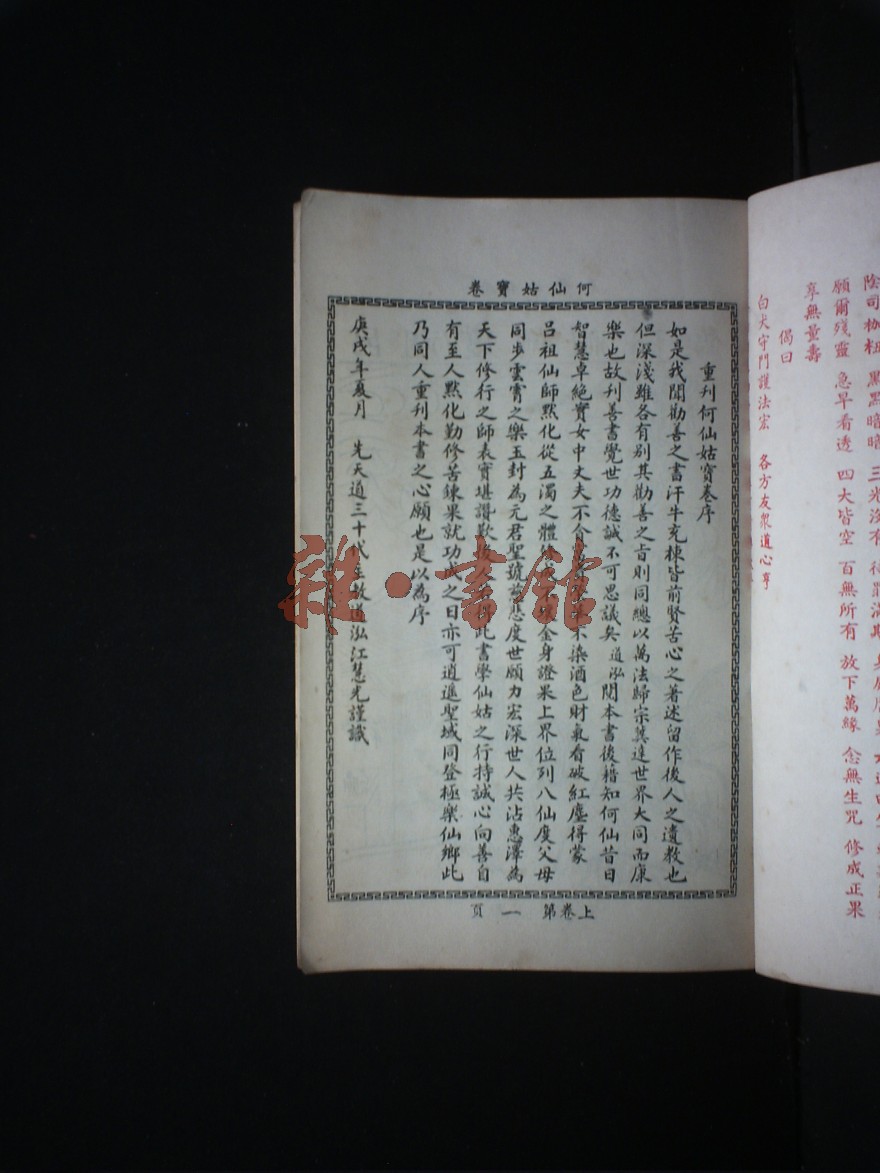 陰司枷杻 黑黑暗暗 三光沒有
願爾殘靈 急早看透 四大皆空 百無所有 放下萬緣 念無生咒 修成正果
享無量壽
偈曰
白犬守門護法宏 各方友眾道心亨
何仙姑寶卷
重刊何仙姑寶卷序
如是我聞勸善之書汗牛充棟皆前賢苦心之著述留作後人之遺教也
但深淺雖各有別其勸善之旨則同總以萬法歸宗冀進世界大同而康
樂也故刊善書覺世功德誠不可思議矣道泓閱本書後藉知何仙昔日
智慧卓絕實女中丈夫不貪不染酒色財氣看破紅塵得蒙
呂祖仙師默化從五濁之體金身證果上界位列八仙度父母
同步雲霄之樂玉封為元君聖號慈悲度世願力宏深世人共沾惠澤為
天下修行之師表實堪讚歎後人此書學仙姑之行持誠心向善自
有至人默化勤修苦鍊果就功成之日亦可逍進聖域同登極樂仙鄉此
乃同人重刊本書之心願也是以為序
庚戌年夏月 先天道三十代道泓江慧光謹識
上卷第一頁
雜·書館